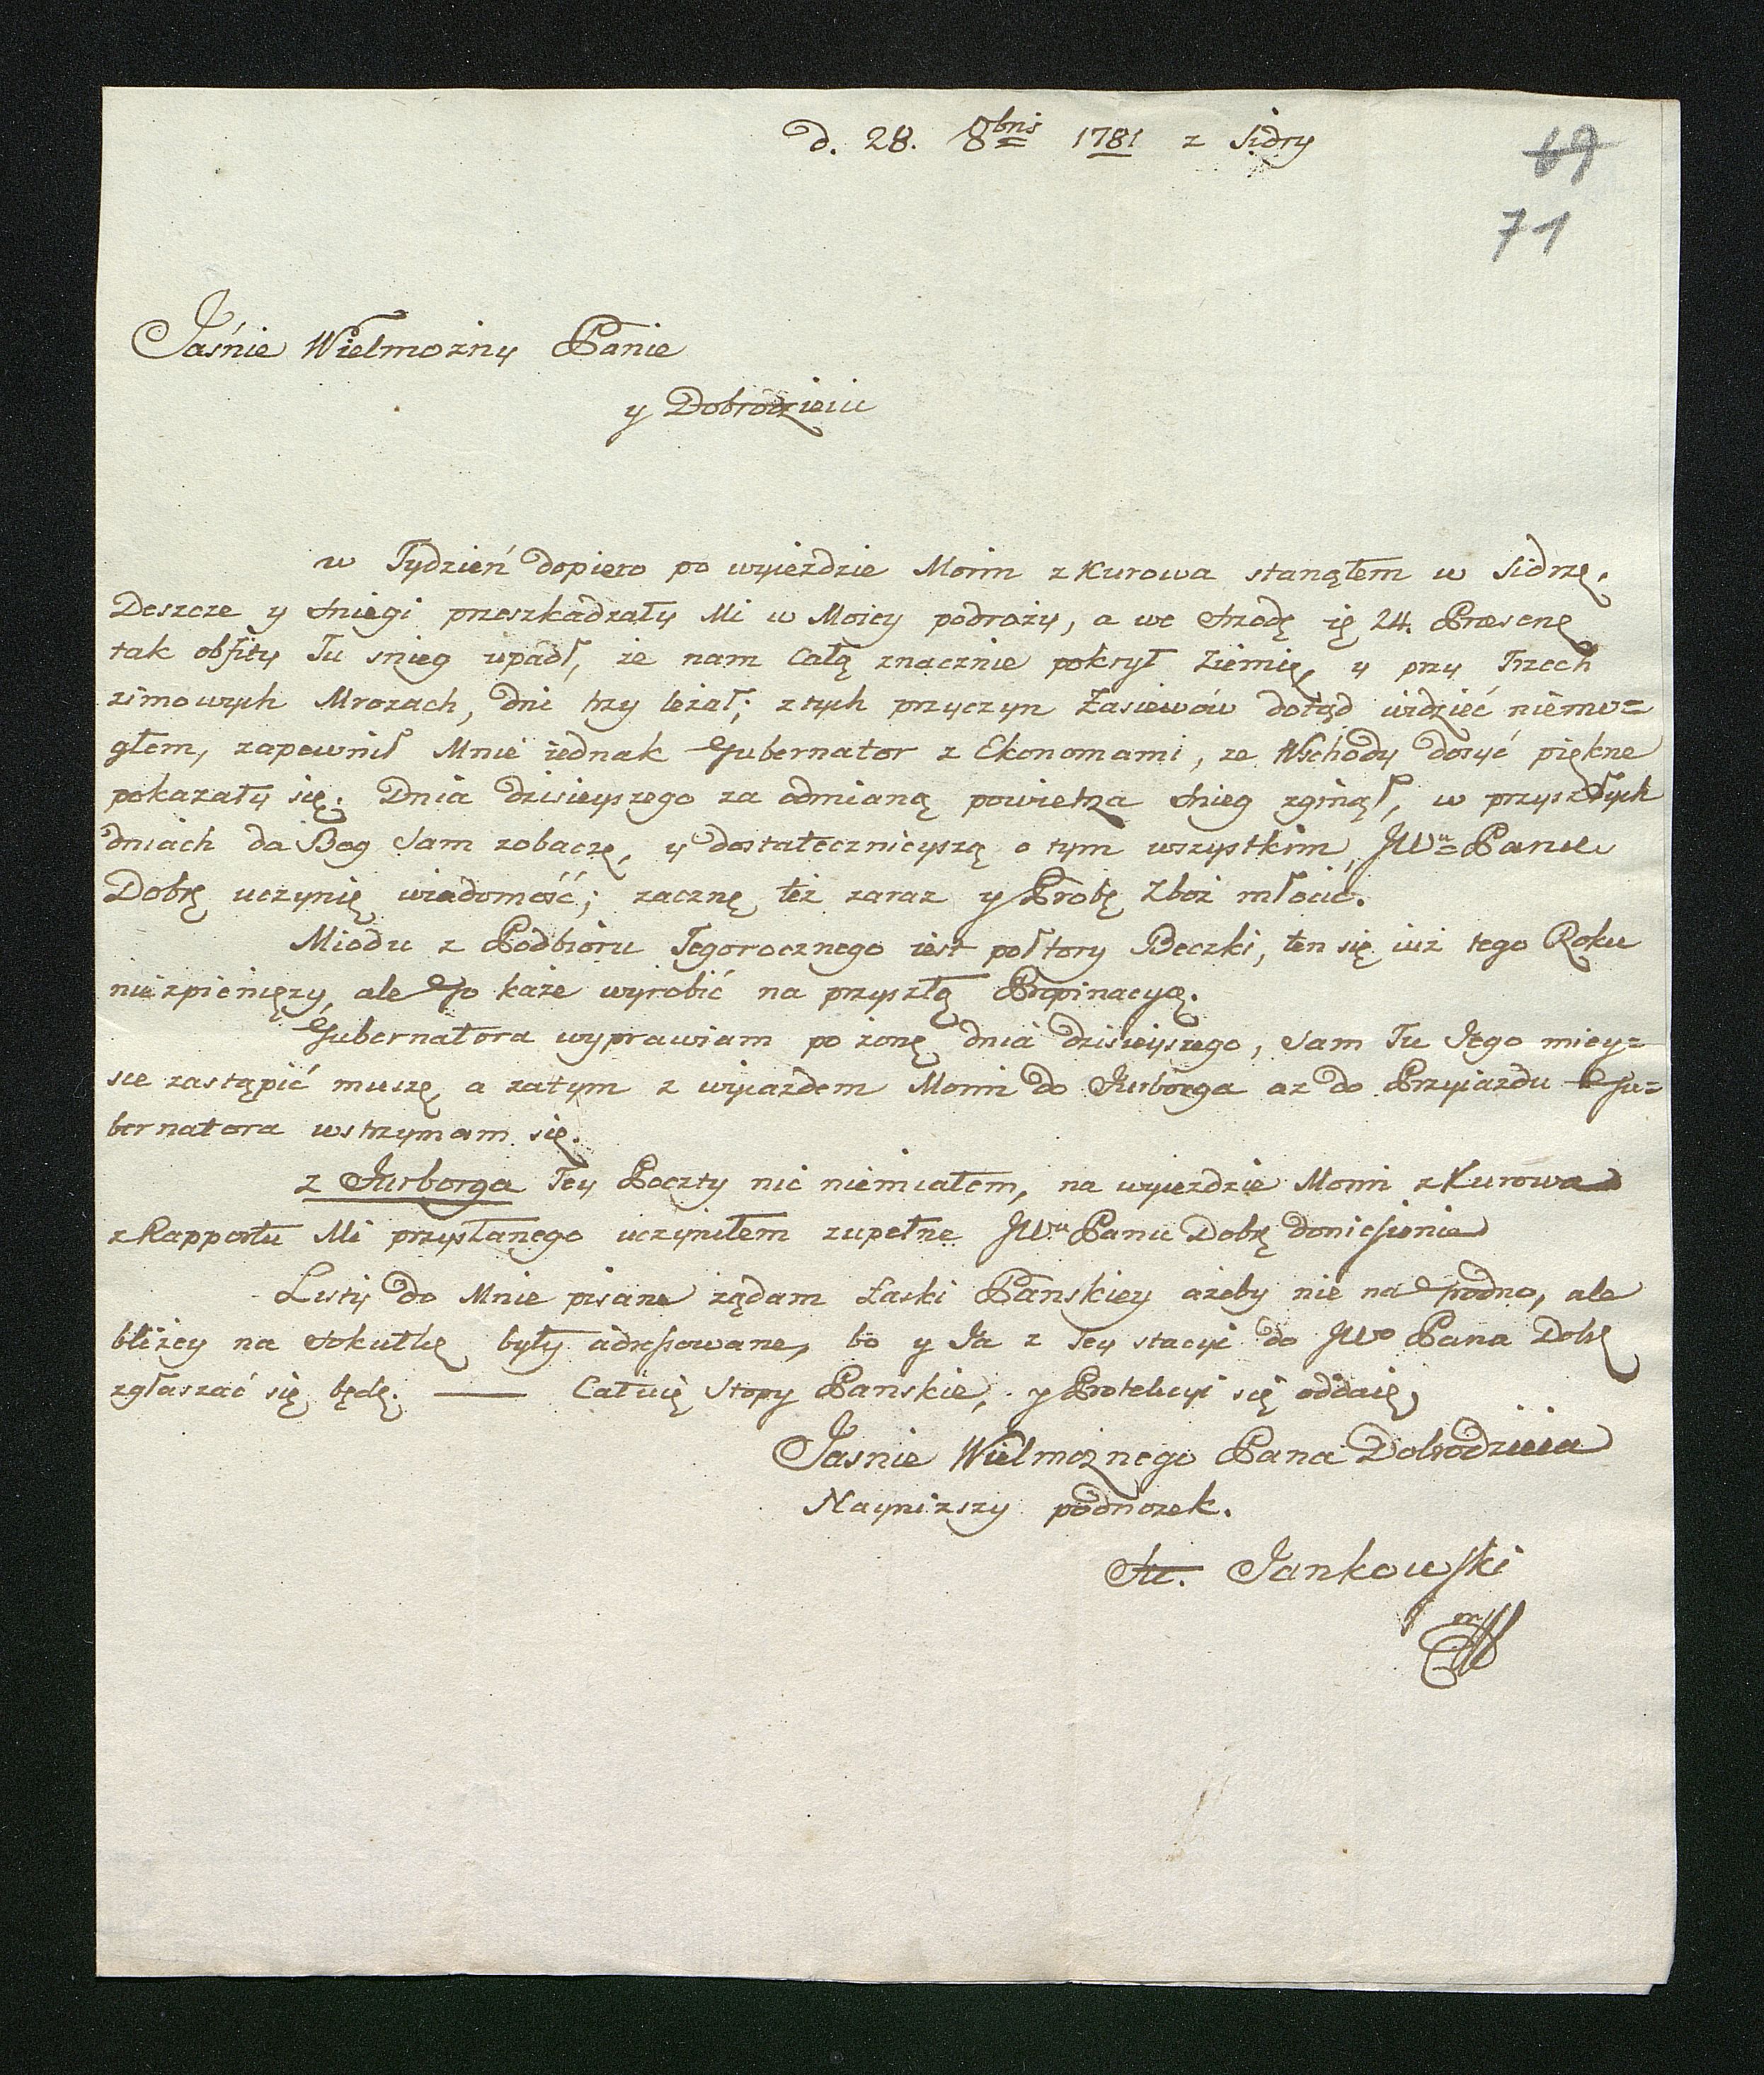 d. 28. 8bris 1781 z Sidry
69
71
Jaśnie Wielmożny Panie
y Dobrodzieiu
w Tydzień dopiero po wyieździe Moim z Kurowa stanąłem w Sidrze.
Deszcze y śniegi przeszkadzały Mi w Moiey podroży, a we Srzodę 24. Præsen
tak obfity Tu snieg upadł, że nam Całą znacznie pokrył Ziemię, y przy Trzech
zimowych Mrozach, dni trzy leżał; z tych przyczyn Zasiewów dotąd widzieć niemo=
głem, zapewnił Mnie iednak Gubernator z Ekonomami, ze Wschody dosyć piękne
pokazały się. Dnia dzisieyszego za odmianą powietrza śnieg zginął, w przyszłych
dniach da Bog Sam zobaczę, y dostatecznieyszą o tym wszystkim, JWu Panu
Dobę uczynię wiadomość; zacznę też zaraz y Probę Zboż młócić.
Miodu z Podbioru Tegorocznego iest połtory Beczki, ten się iuż tego Roku
nie zpienięży, ale Go każe wyrobić na przyszłą Propinacyę.
Gubernatora wyprawiam po żonę dnia dzisieyszego, Sam Tu Jego miey=
sce zastąpić muszę, a zatym z wyiazdem Moim do Jurborga az do Przyiazdu Gu=
bernatora wstrzymam się.
z Jurborga Tey Poczty nic niemiałem, na wyieździe Moim z Kurowa
z Rapportu Mi przysłanego uczyniłem zupełne JWu Panu Dobę doniesienie
Listy do Mnie pisane żądam Łaski Panskiey ażeby nie na Grodno, ale
bliżey na Sokułkę były adressowane, bo y Ja z Tey stacyi do JWo Pana Dobę
zgłaszać się będę. — Całuię Stopy Panskie, y Protekcyi się oddaię,
Jasnie Wielmożnego Pana Dobrodzieia
Nayniższy podnożek.
Jankowski